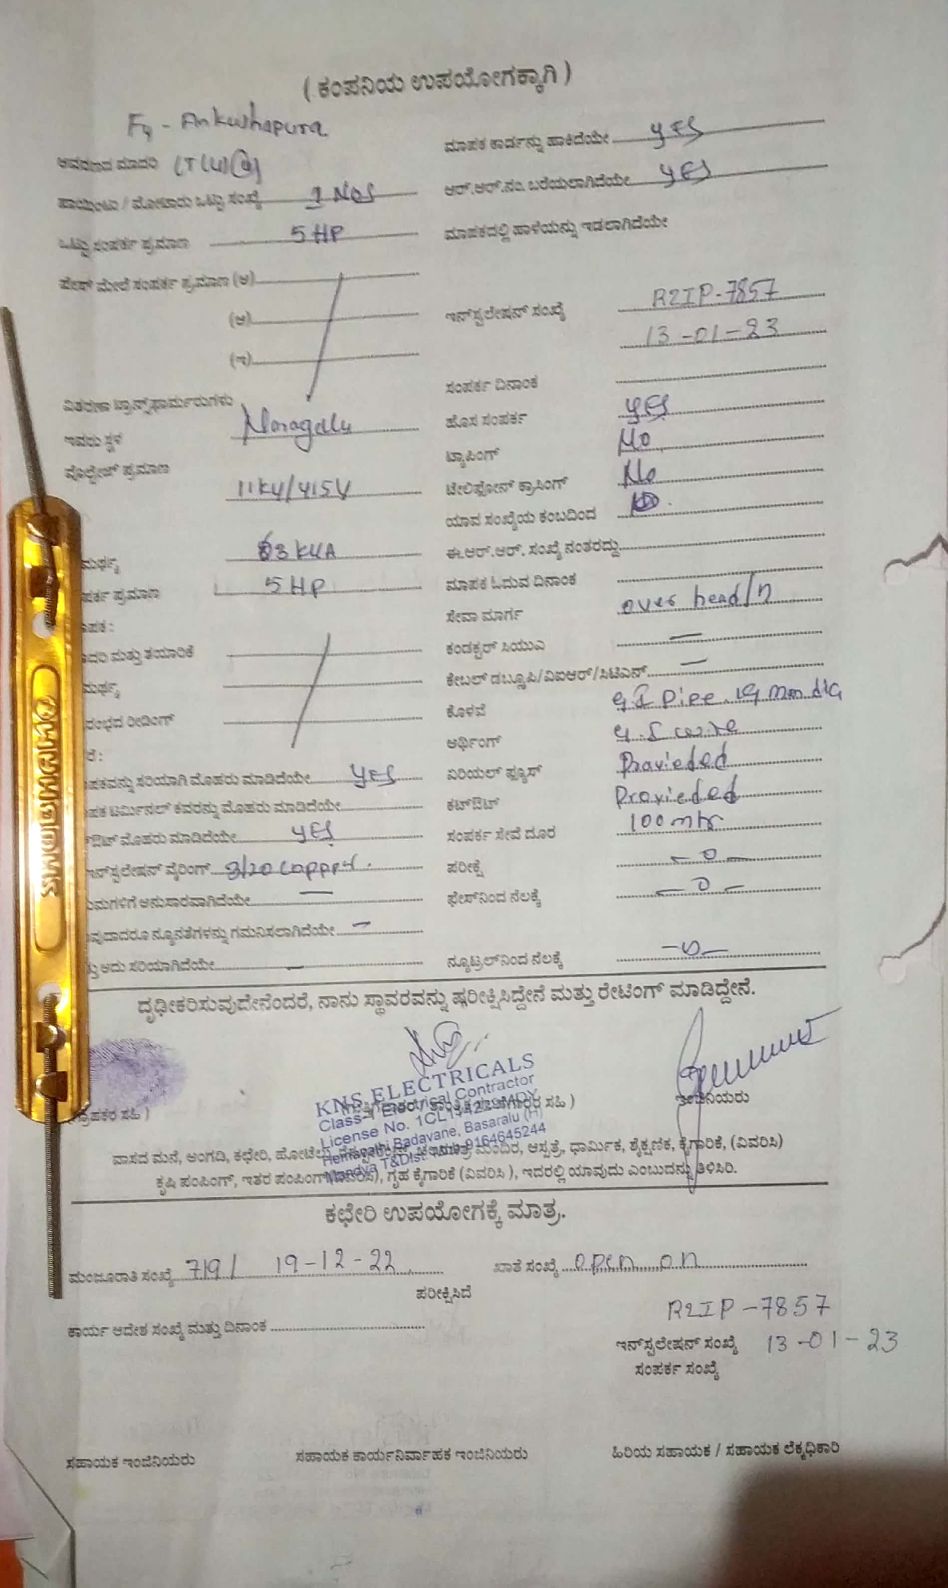 ( ಕಂಪನಿಯ ಉಪಯೋಗಕ್ಕಾಗಿ )
Fy - Ankushapura
ಆವರಣದ ಮಾದರಿ
ಮಾಪಕ ಕಾರ್ಡನ್ನು ಹಾಕಿದೆಯೇ YES
ಹಾಯಿಂಟು / ಮೋಟಾರು ಒಟ್ಟು ಸಂಖ್ಯೆ 1 NOS
ಆರ್.ಆರ್.ನಂ. ಬರೆಯಲಾಗಿದೆಯೇ YES
ಒಟ್ಟು ಸಂಪರ್ಕ ಪ್ರಮಾಣ 5 HP
ಮಾಪಕದಲ್ಲಿ ಹಾಳೆಯನ್ನು ಇಡಲಾಗಿದೆಯೇ
ಪೇಠ್ ಮೇಲೆ ಸಂಪರ್ಕ ಪ್ರಮಾಣ (ಅ)
(ಆ)
ಇನ್‌ಸ್ಟಲೇಷನ್ ಸಂಖ್ಯೆ R2IP-7857
13-01-23
(ಇ)
ಸಂಪರ್ಕ ದಿನಾಂಕ
ವಿತರಣಾ ಟ್ರಾನ್ಸ್‌ಫಾರ್ಮರುಗಳು
ಇವರು ಸ್ಥಳ Naragalu
ಹೊಸ ಸಂಪರ್ಕ YES
ವೊಲ್ಟೇಜ್ ಪ್ರಮಾಣ 11KV/415V
ಟ್ಯಾಪಿಂಗ್ No
ಟೆಲಿಫೋನ್ ಕ್ರಾಸಿಂಗ್ No
ಯಾವ ಸಂಖ್ಯೆಯ ಕಂಬದಿಂದ
ಮರ್ಥ್ಯ 63 KVA
ಈ.ಆರ್.ಆರ್. ಸಂಖ್ಯೆ ನಂತರದ್ದು
ಪರ್ಕ ಪ್ರಮಾಣ 5 HP
ಮಾಪಕ ಓದುವ ದಿನಾಂಕ
ಾಪಕ :
ಸೇವಾ ಮಾರ್ಗ over head/n
ಾದರಿ ಮತ್ತು ತಯಾರಿಕೆ
ಕಂಡಕ್ಟರ್ ಸಿಯುಎ —
ಮರ್ಥ್ಯ
ಕೇಬಲ್ ಡಬ್ಲೂಪಿ/ವಿಐಆರ್/ಸಿಟಿಎನ್ —
ರಂಭದ ರೀಡಿಂಗ್
ಕೊಳವೆ G.I Piee. 19 mm dia
ಆರ್ಥಿಂಗ್ G.I wire
ಪಕವನ್ನು ಸರಿಯಾಗಿ ಮೊಹರು ಮಾಡಿದೆಯೇ YES
ಏರಿಯಲ್ ಫ್ಯೂಸ್ Provieded
ಪಕ ಟರ್ಮಿನಲ್ ಕವರನ್ನು ಮೊಹರು ಮಾಡಿದೆಯೇ
ಕಟ್‌ಔಟ್ Provieded
ಔಟ್ ಮೊಹರು ಮಾಡಿದೆಯೇ YES
ಸಂಪರ್ಕ ಸೇವೆ ದೂರ 100 mtr
ಇನ್‌ಸ್ಟಲೇಷನ್ ವೈರಿಂಗ್ 3/20 Copper.
ಪರೀಕ್ಷೆ —0—
ಯಮಗಳಿಗೆ ಅನುಸಾರವಾಗಿದೆಯೇ —
ಫೇಸ್‌ನಿಂದ ನೆಲಕ್ಕೆ —0—
ವುದಾದರೂ ನ್ಯೂನತೆಗಳನ್ನು ಗಮನಿಸಲಾಗಿದೆಯೇ —
ತ್ತು ಅದು ಸರಿಯಾಗಿದೆಯೇ —
ನ್ಯೂಟ್ರಲ್‌ನಿಂದ ನೆಲಕ್ಕೆ —0—
ದೃಢೀಕರಿಸುವುದೇನೆಂದರೆ, ನಾನು ಸ್ಥಾವರವನ್ನು ಪರೀಕ್ಷಿಸಿದ್ದೇನೆ ಮತ್ತು ರೇಟಿಂಗ್ ಮಾಡಿದ್ದೇನೆ.
KNS ELECTRICALS
Class-I Electrical Contractor
License No.
Hemagathi Badavane, Basaralu (H)
Mandya T&Dist 9164645244
ಗ್ರಾಹಕರ ಸಹಿ )
ಸಹಿ )
ಇಂಜಿನಿಯರು
ವಾಸದ ಮನೆ, ಅಂಗಡಿ, ಕಛೇರಿ, ಹೋಟೆಲು, ಮಂದಿರ, ಆಸ್ಪತ್ರೆ, ಧಾರ್ಮಿಕ, ಶೈಕ್ಷಣಿಕ, ಕೈಗಾರಿಕೆ, (ವಿವರಿಸಿ)
ಕೃಷಿ ಪಂಪಿಂಗ್, ಇತರ ಪಂಪಿಂಗ್ (ವಿವರಿಸಿ), ಗೃಹ ಕೈಗಾರಿಕೆ (ವಿವರಿಸಿ ), ಇದರಲ್ಲಿ ಯಾವುದು ಎಂಬುದನ್ನು ತಿಳಿಸಿರಿ.
ಕಛೇರಿ ಉಪಯೋಗಕ್ಕೆ ಮಾತ್ರ.
ಮಂಜೂರಾತಿ ಸಂಖ್ಯೆ 719 / 19-12-22
ಖಾತೆ ಸಂಖ್ಯೆ open on
ಪರೀಕ್ಷಿಸಿದೆ
R2IP-7857
ಕಾರ್ಯ ಆದೇಶ ಸಂಖ್ಯೆ ಮತ್ತು ದಿನಾಂಕ
ಇನ್‌ಸ್ಟಲೇಷನ್ ಸಂಖ್ಯೆ 13-01-23
ಸಂಪರ್ಕ ಸಂಖ್ಯೆ
ಸಹಾಯಕ ಇಂಜಿನಿಯರು
ಸಹಾಯಕ ಕಾರ್ಯನಿರ್ವಾಹಕ ಇಂಜಿನಿಯರು
ಹಿರಿಯ ಸಹಾಯಕ / ಸಹಾಯಕ ಲೆಕ್ಕಾಧಿಕಾರಿ